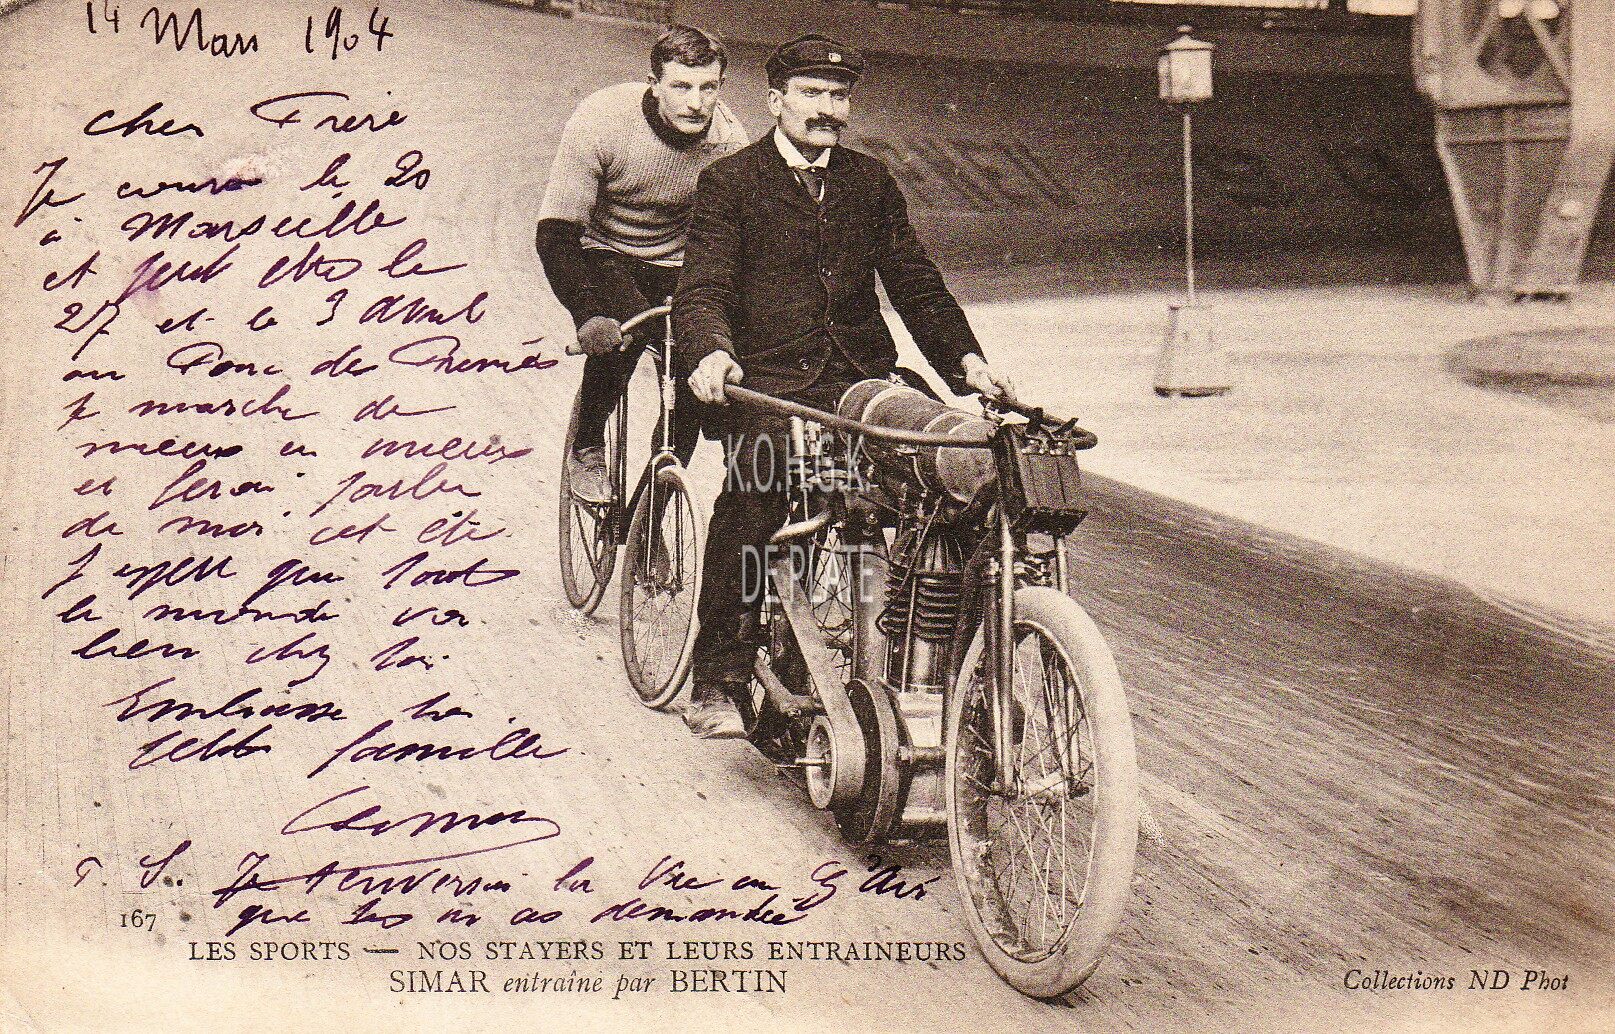 14 Mars 1904
Cher Frère
Je cours le 20
à Marseille
et peut etre le
27 et le 3 Avril
au Parc des Princes
je marche de
mieux en mieux
et ferai parler
de moi cet été
J'espere que tout
le monde va
bien chez toi.
Embrasse ta
petite famille
Simar
P. S. Je t'enverrai la Vie au Gd Air
que tu m'as demandée
167
LES SPORTS — NOS STAYERS ET LEURS ENTRAINEURS
SIMAR entraîné par BERTIN
Collections ND Phot
K.O.H.G.K.
DE PLATE